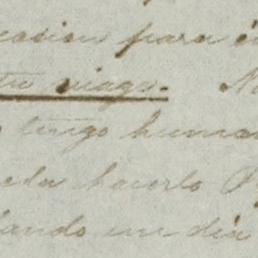 casion para
tu viage. N
tengo huma
eda hacerlo
dando un dia